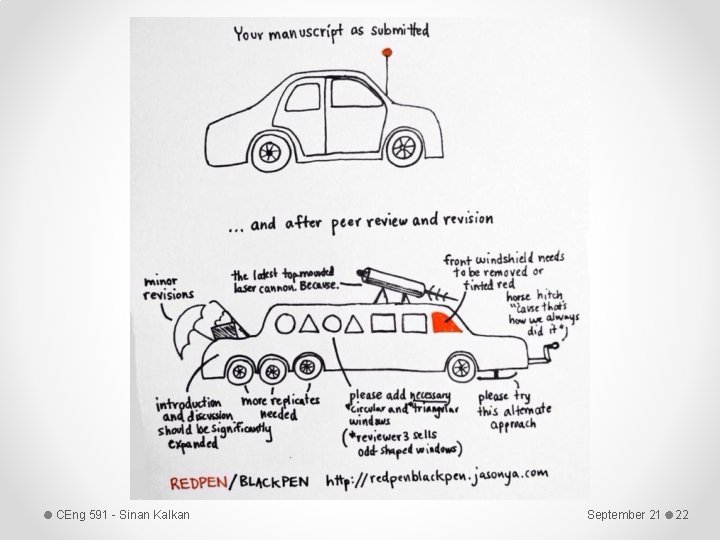 Your manuscript as submitted
... and after peer review and revision
minor
revisions
the latest top-mounted
laser cannon. Because.
front windshield needs
to be removed or
tinted red
horse hitch
"'cause that's
how we always
did it")
introduction
and discussion
should be significantly
expanded
more replicates
needed
please add necessary
*circular and *triangular
windows
(*reviewer 3 sells
odd-shaped windows)
please try
this alternate
approach
REDPEN/BLACKPEN http://redpenblackpen.jasonya.com
CEng 591 - Sinan Kalkan
September 21 22